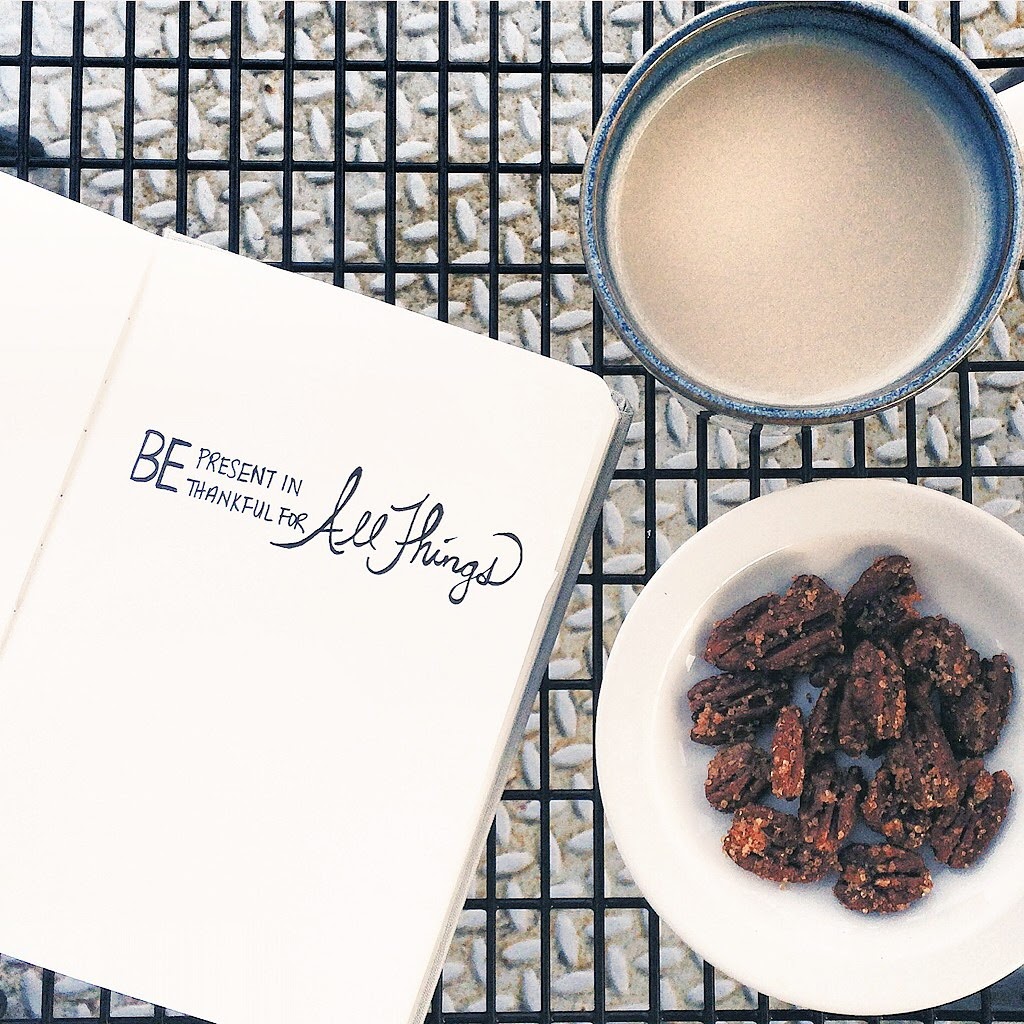 BE PRESENT IN
THANKFUL FOR All Things